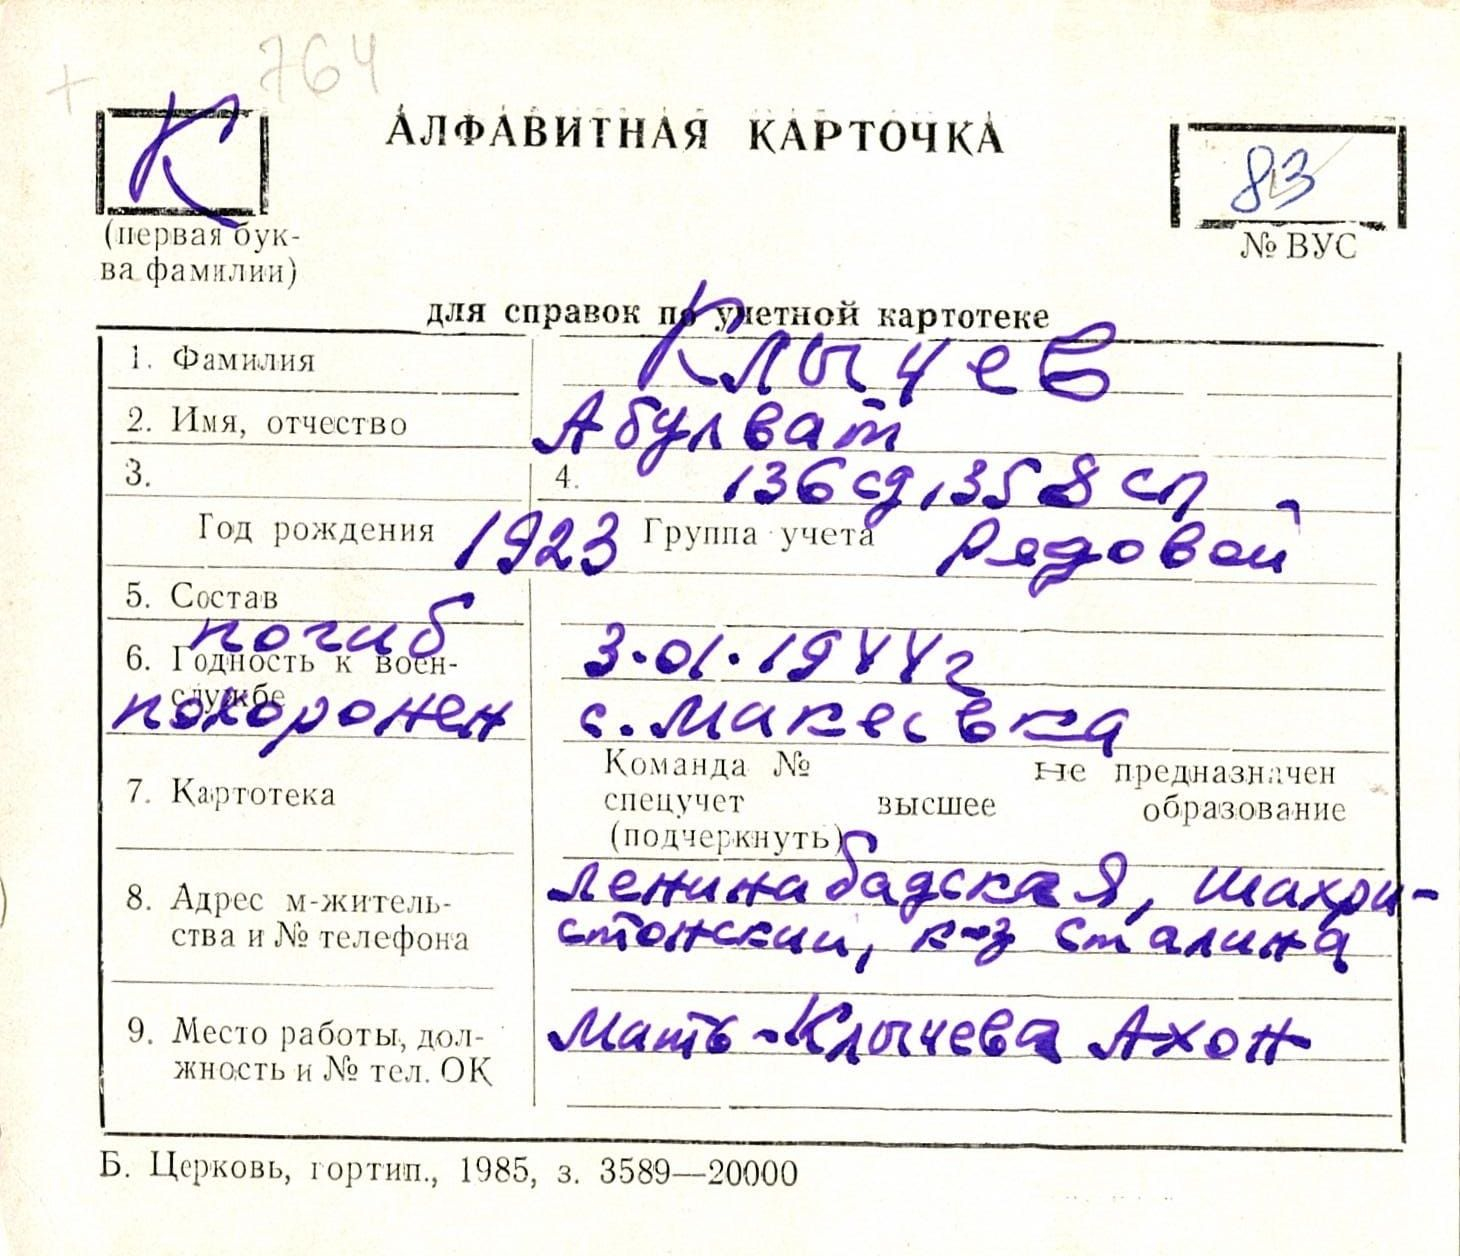 + 764
К
АЛФАВИТНАЯ КАРТОЧКА
83
(первая бук-
ва фамилии)
№ ВУС
для справок по учетной картотеке
1. Фамилия Клычев
2. Имя, отчество Абулват
3. 4. 136 сд, 358 сп
Год рождения 1923 Группа учета Рядовой
5. Состав
погиб 3.01.1944г
6. Годность к воен-
службе
похоронен с. Макеевка
7. Картотека
Команда № не предназначен
спецучет высшее образование
(подчеркнуть)
8. Адрес м-житель-
ства и № телефона
Ленинабадская, Шахри-
стонский, к-з Сталина
9. Место работы, дол-
жность и № тел. ОК
Мать - Клычева Ахон
Б. Церковь, гортип., 1985, з. 3589—20000